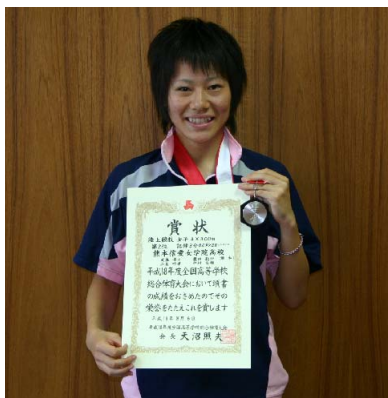 賞状
陸上競技 女子4×400m
第2位
熊本信愛女学院高校
平成18年度全国高等学校
総合体育大会において頭書
の成績をおさめたのでその
栄誉をたたえこれを賞します
平成18年8月6日
会長 大沼照夫